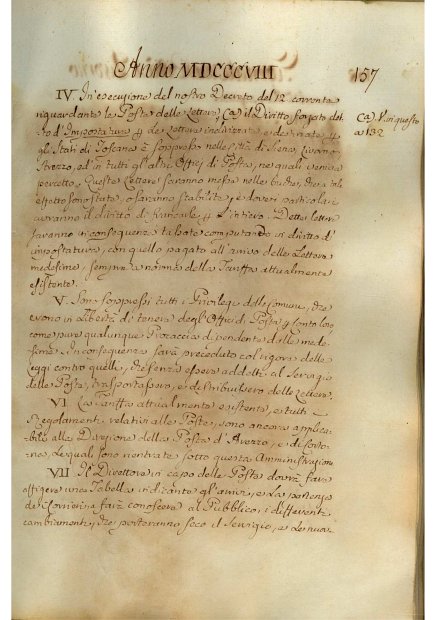 Anno MDCCCVIII
157
IV. In esecuzione del nostro Decreto del 12 corrente
riguardante le Poste delle Lettere (a) il Diritto forzato det-
to d'Impostatura p delle Lettere indirizzate e destinate p
gli Stati di Toscana è soppresso nelle Città di Siena, Livorno
Arezzo, ed in tutti gl'altri Offici di Posta, ne quali veniva
percetto. Queste Lettere saranno messe nelle buche, che a tale
effetto sono state, o saranno stabilite, e dove i particolari
avranno il diritto di francarle p l'intiero. Dette lettere
saranno in conseguenza tassate computando il diritto d'
impostatura, con quello pagato all'arrivo delle Lettere
medesime, sempre a norma della Tariffa attualmente
esistente.
(a) V. in questo
a 132
V. Sono soppressi tutti i Privilegi delle Comuni, che
sono in Libertà di tenere degl'Offici di Posta p conto loro
come pure qualunque Procaccia dipendente dalle mede-
sime. In conseguenza sarà proceduto col rigore delle
Leggi contro quelli, che senza essere addetti al Servizio
delle Poste, trasportassero, e distribuissero delle Lettere.
VI. La Tariffa attualmente esistente, e tutti i
Regolamenti relativi alle Poste, sono ancora applica-
bili alla Direzione della Posta d'Arezzo, e di Corto-
na, le quali sono rientrate sotto questa Amministrazione
VII. Il Direttore in capo delle Poste dovrà fare
affigere una Tabella indicante gl'arrivi, e la partenza
de Corrieri, e farà conoscere al Pubblico, i differenti
cambiamenti, che porteranno seco il servizio, e le nuo-